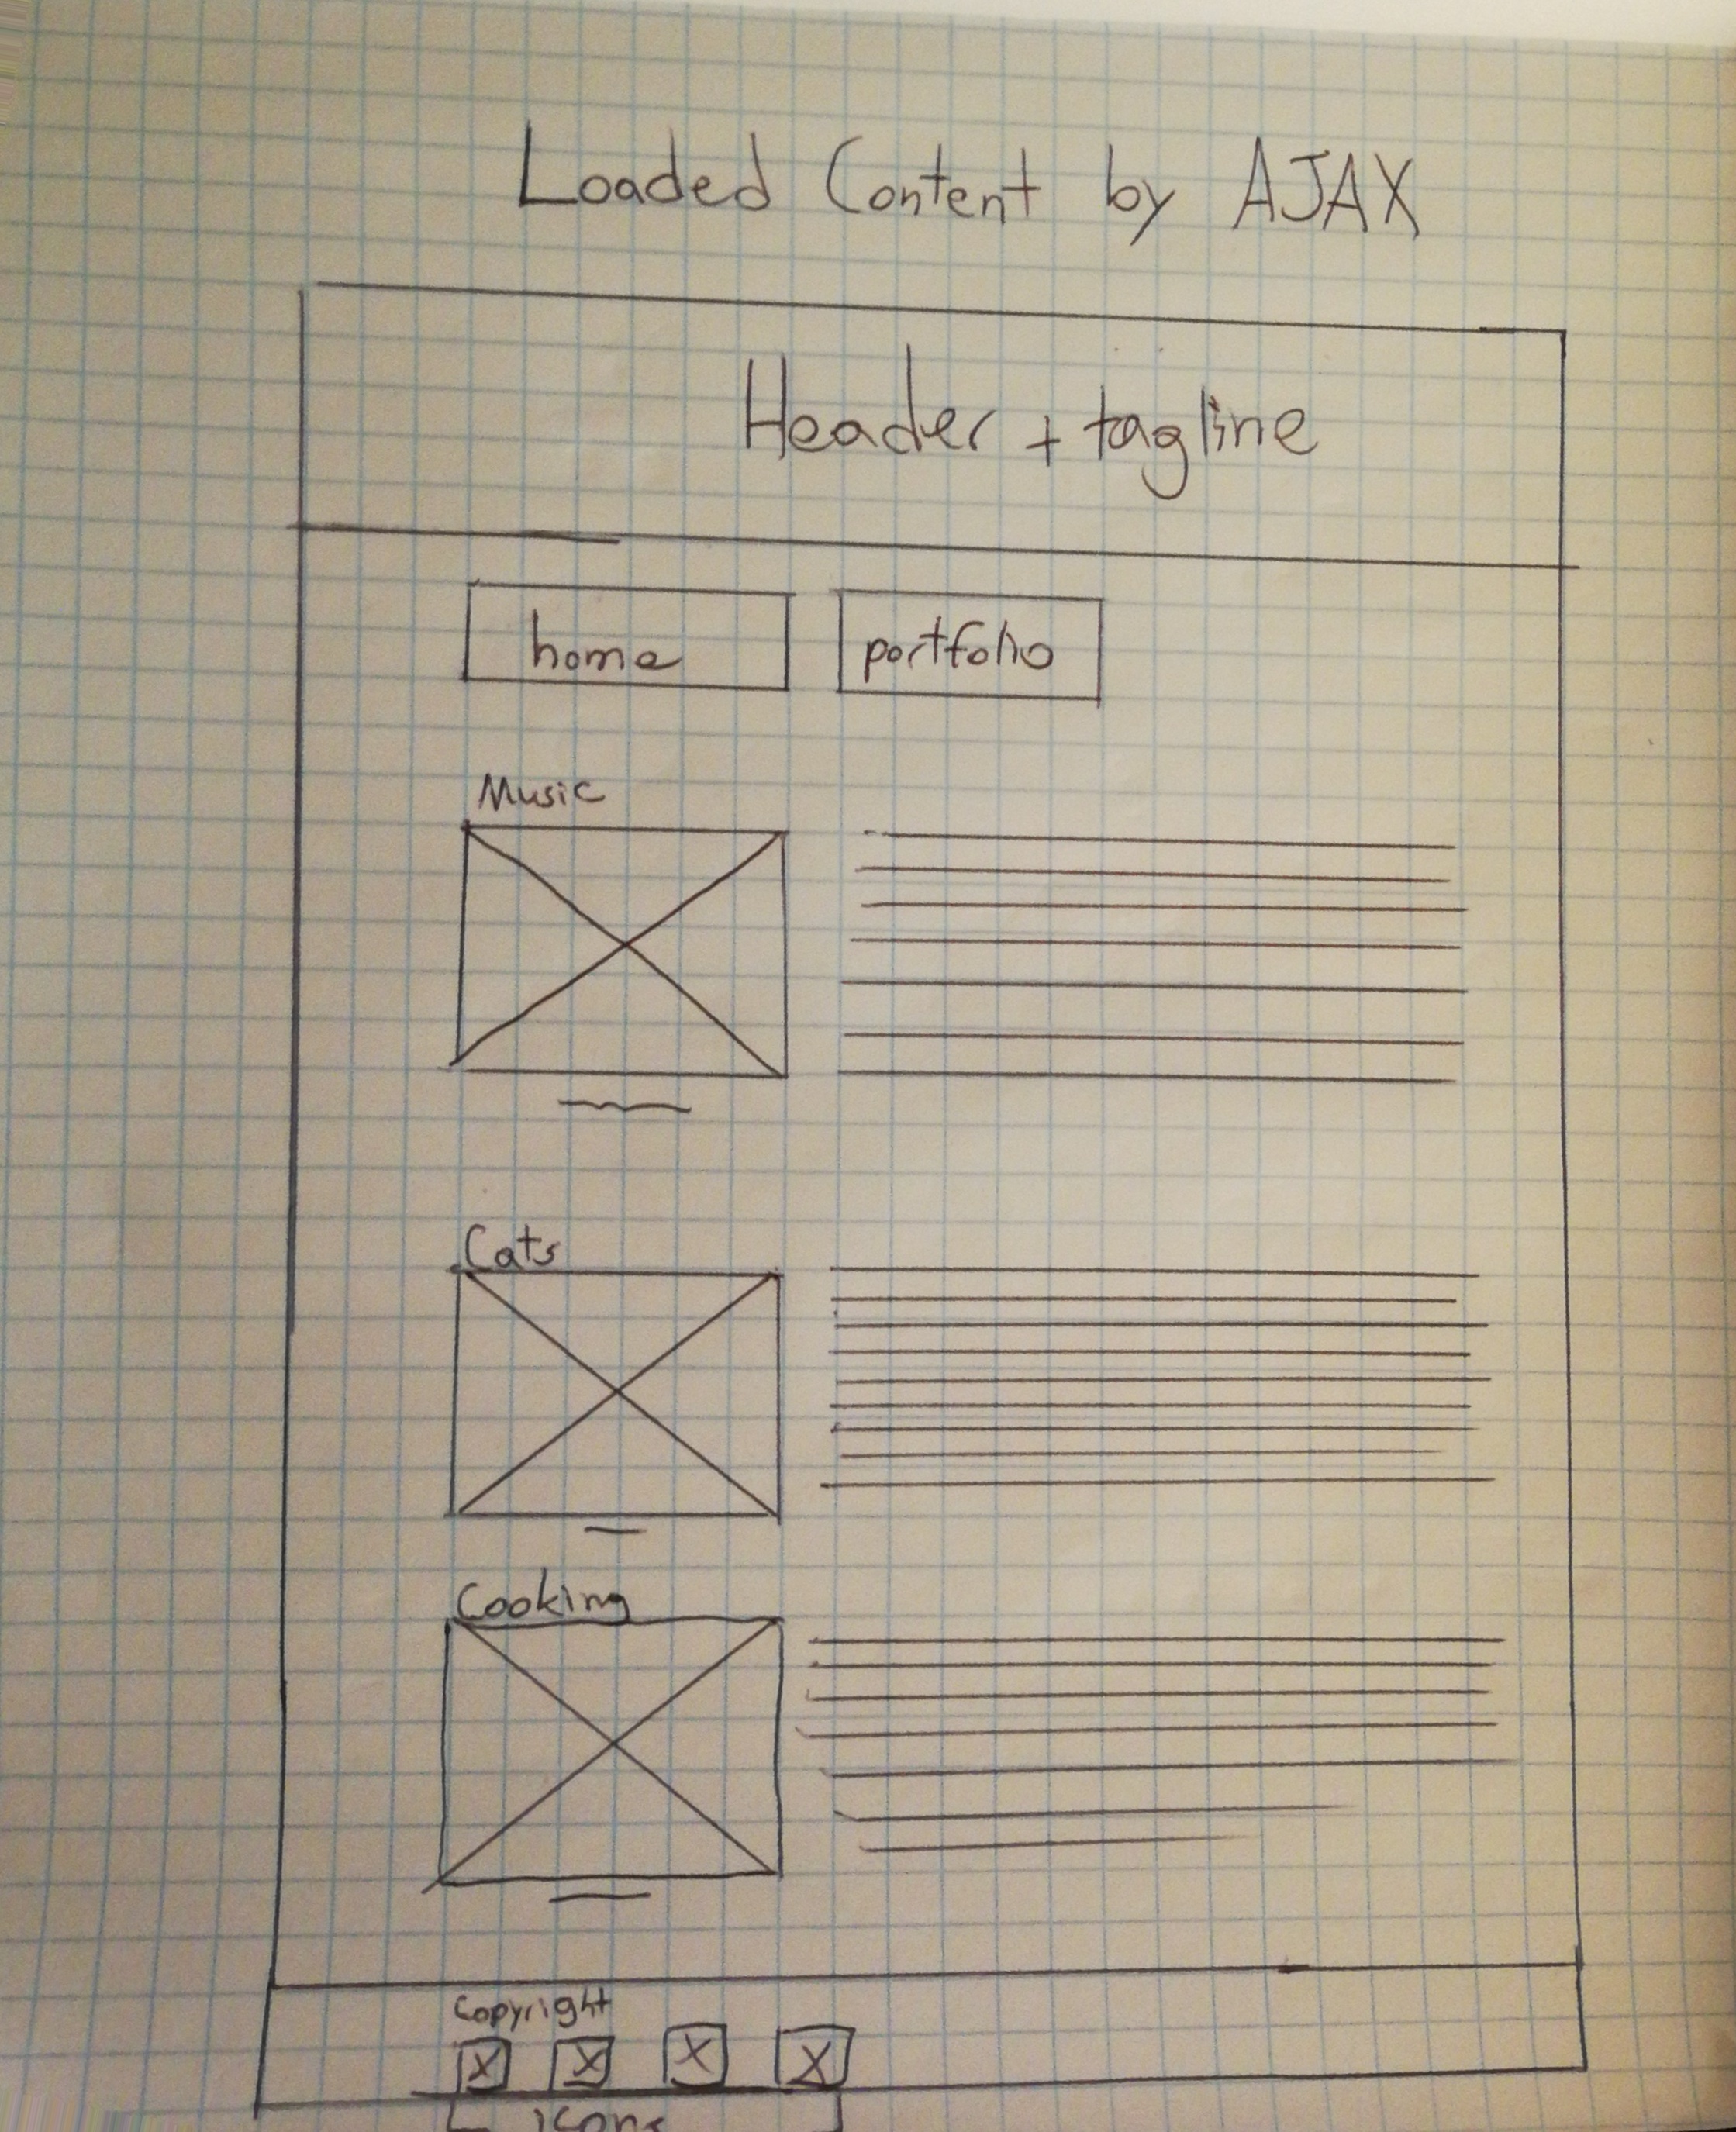 Loaded Content by AJAX
Header + tagline
home
portfolio
Music
Cats
Cooking
Copyright
X X X X
icons